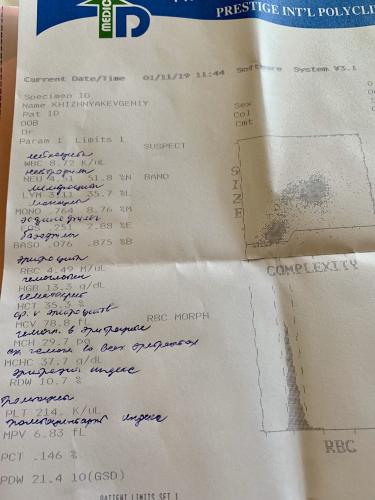 MEDIC
PRESTIGE INT'L POLYCLI
Current Date/Time 01/11/19 11:44 Software System V3.1
Specimen ID
Name KHIZHNYAKEVGENIY
Pat ID
DOB
Dr
Sex
Col
Cmt
Param 1 Limits 1
SUSPECT
лейкоциты
WBC 8.72 K/uL
нейтрофилы
NEU 4.51 51.8 %N BAND
лимфоциты
LYM 3.11 35.7 %L
моноциты
MONO .764 8.76 %M
эозинофилы
EOS .251 2.88 %E
базофилы
BASO .076 .875 %B
SIZE
COMPLEXITY
эритроциты
RBC 4.49 M/uL
гемоглобин
HGB 13.3 g/dL
гематокрит
HCT 35.3 %
ср. V эритроцитов
MCV 78.8 fL RBC MORPH
гемогл. в эритроците
MCH 29.7 pg
ср. гемогл. во всех эритроцитах
MCHC 37.7 g/dL
индекс
RDW 10.7 %
тромбоциты
PLT 214. K/uL
тромбоцитарный индекс
MPV 6.83 fL
PCT .146 %
PDW 21.4 10(GSD)
RBC
PATIENT LIMITS SET 1